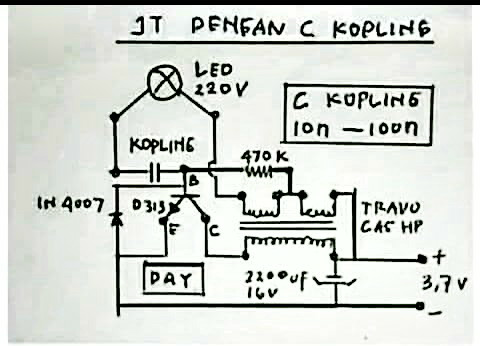 1T DENGAN C KOPLING
LED
220V
C KOPLING
10n — 100n
KOPLING
470K
B
1N4007
D313
E
C
TRAVO
CAS HP
DAY
2200uF
16V
+
3,7V
-